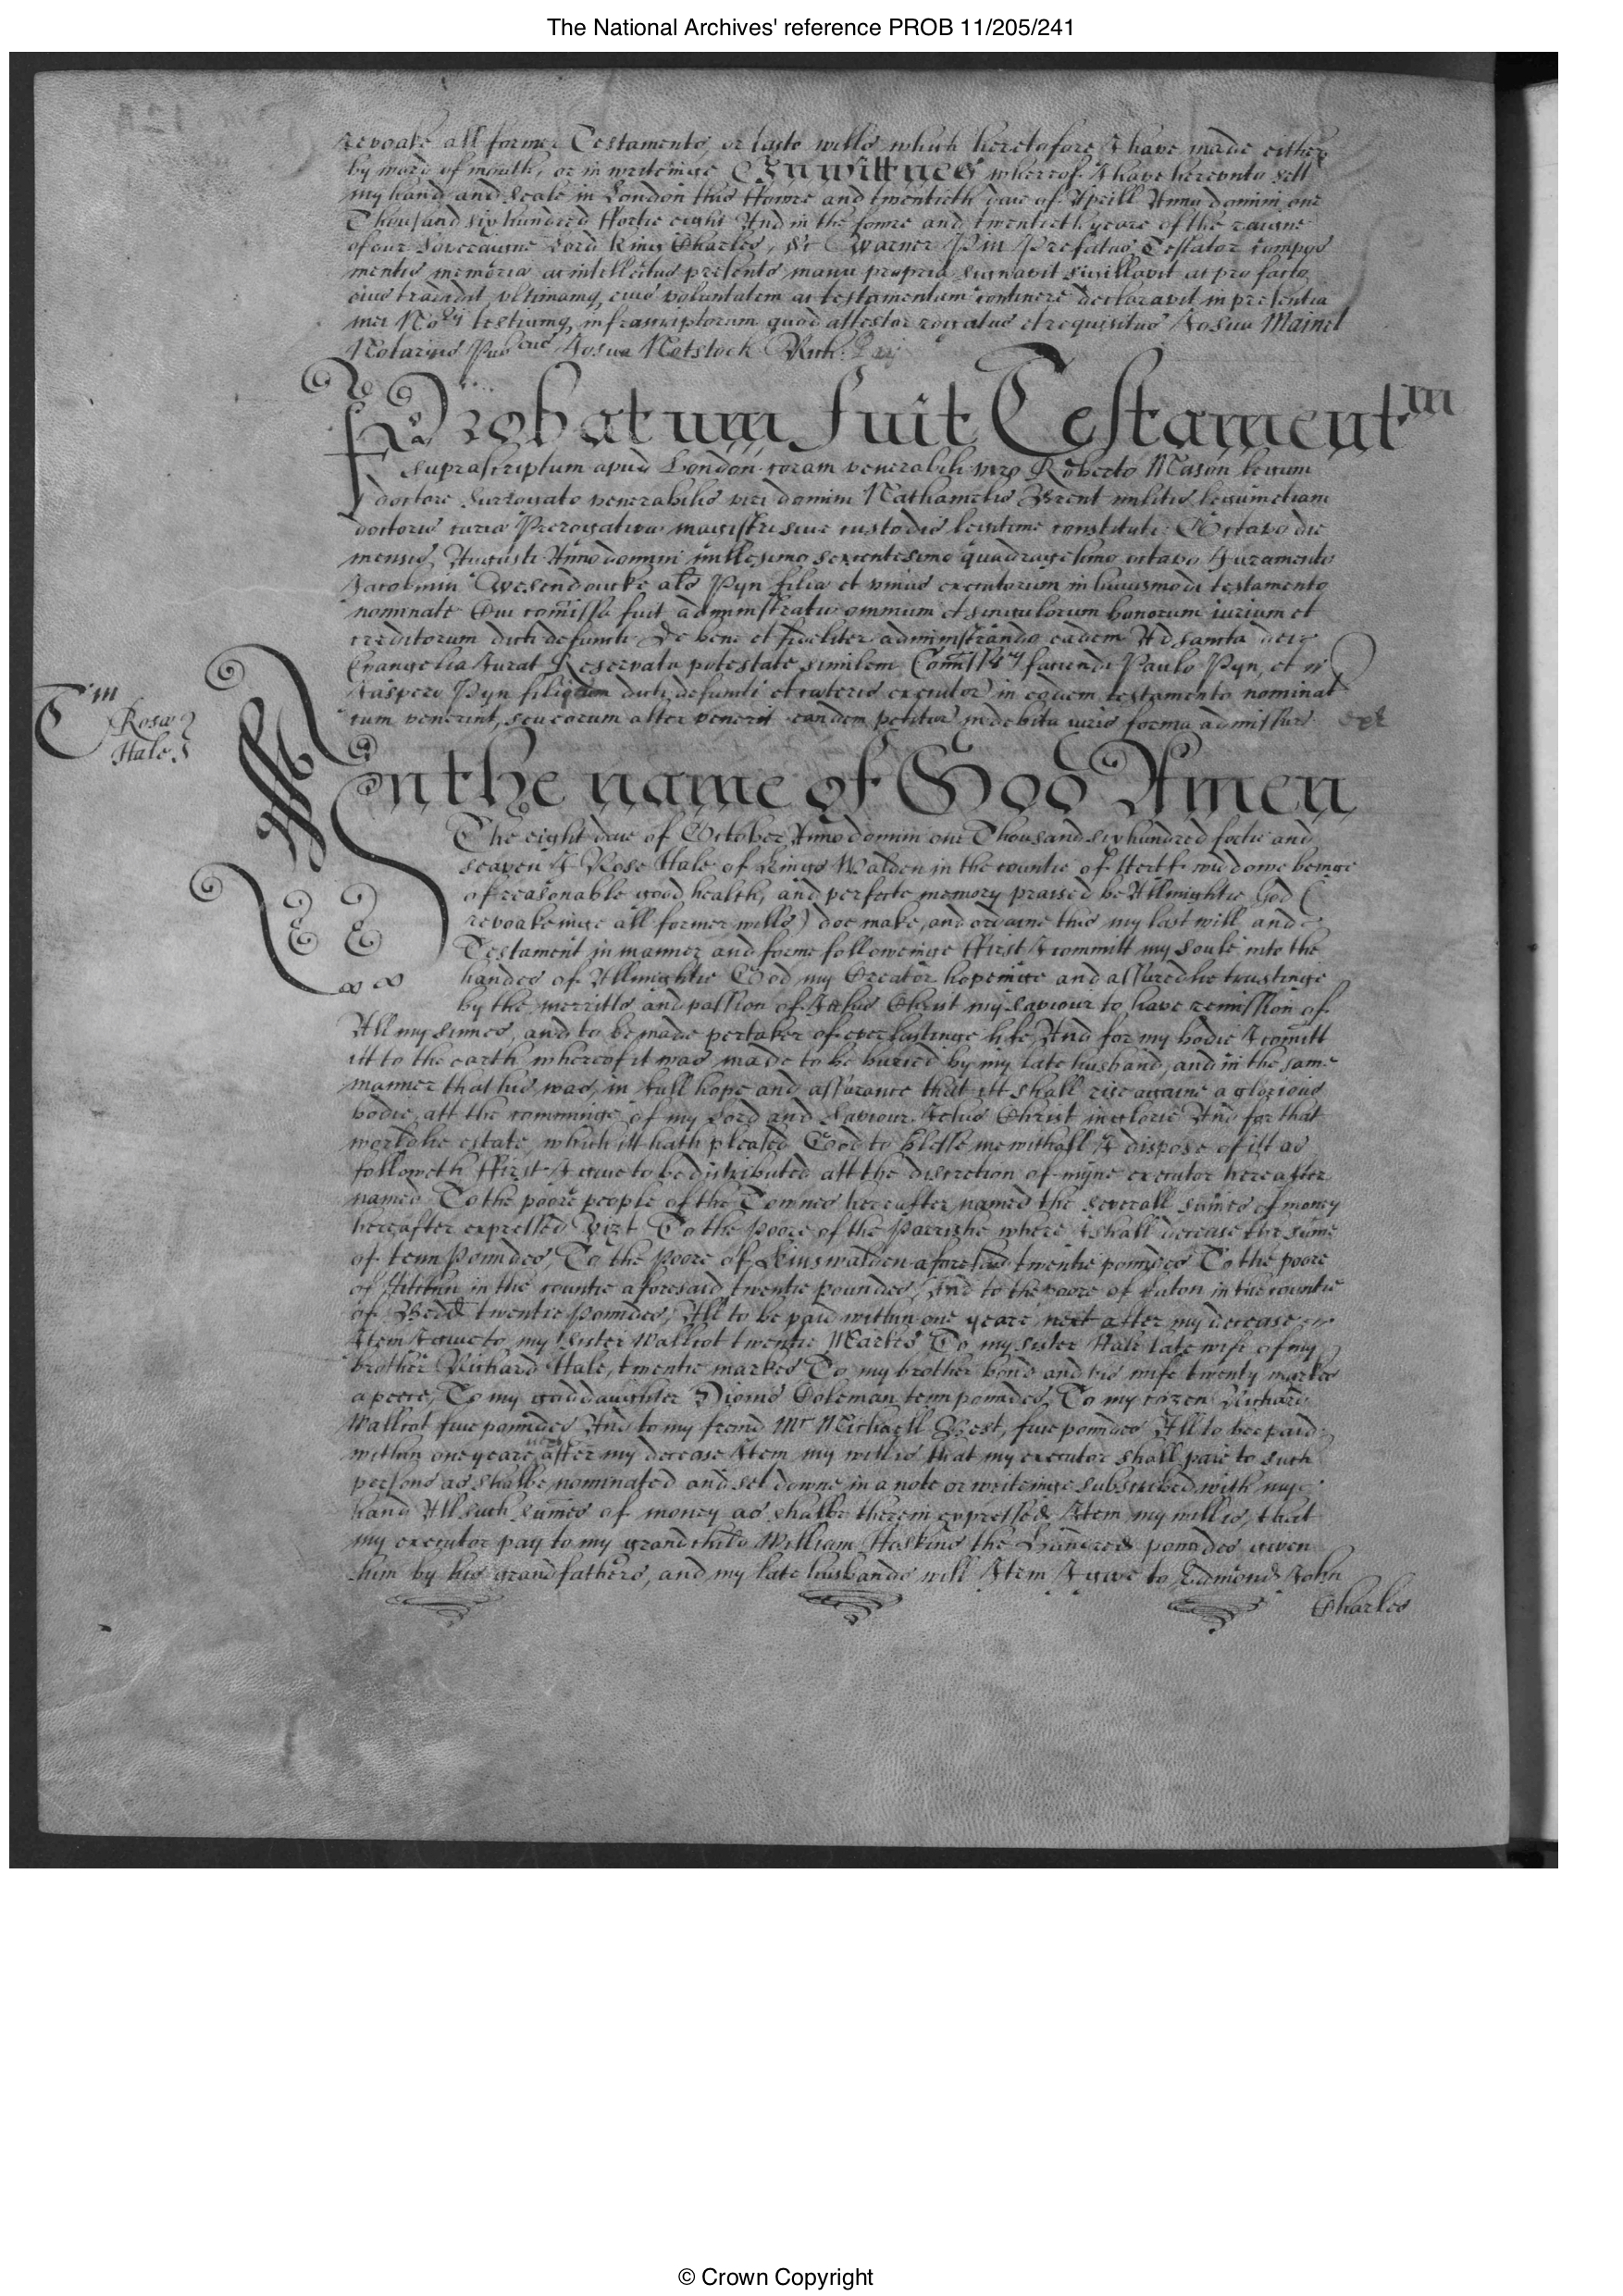 The National Archives' reference PROB 11/205/241
revoake all former Testaments, or laste wills which heretofore I have made either
by word of mouth, or in writeinge In wittnes whereof I have hereunto sett
my hand and seale in London this ffowre and twentieth daie of Aprill Anno domini one
Thousand six hundred ffortie eight And in the fowre and twentieth yeare of the raigne
of our Soveraigne Lord King Charles, &c Warner Pin Prefatus Testator compos
mentis memoria ac intellectus presents manu propria signavit sigillavit ac pro facto
eius tradidit ultimamq, eius voluntatem ac testamentum continere declaravit in presentia
mei No.ry testiumq, infrascriptorum quod attestor rogatus et requisitus Josua Mainet
Notarius Pub.cus Josua Notstock Rich:
Probatum fuit Testament.m
suprascriptum apud London coram venerabili viro Roberto Mason legum
doctore Surrogato venerabilis viri domini Nathanielis Brent militis legum etiam
doctoris curie Prerogativa magistri sive custodis legitime constituti Octavo die
mensis Augusti Anno domini millesimo sexcentesimo quadragesimo octavo Juramento
Jacolmin Wesendoncke als Pyn filia et unius executorum in huiusmodi testamento
nominate Cui comissa fuit administratio omnium et singulorum bonorum iurium et
creditorum dicti defuncti De bene et fideliter administrando eadem Ad sancta dei
Evangelia Jurat Reservata potestate similem Com̃ss.ry faciendi Paulo Pyn, et
Jaspero Pyn filiorum dicti defuncti et ceteris executor in eodem testamento nominat
cum venerint, seu eorum alter venerit eandem petitur in debita iuris forma admissur ex.t
T.m
Rosæ
Hale
In the name of God Amen
The eight daie of October Anno domini one Thousand six hundred fortie and
seaven I Rose Hale of Kings Walden in the countie of Hertf widdowe beinge
of reasonable good health, and perfecte memory praised be Allmightie God (
revoakeinge all former wills) doe make, and ordaine this my last will and
Testament in manner and forme followeinge ffirst I committ my soule into the
handes of Allmightie God my Creator hopeinge and assuredlie trustinge
by the merritts and passion of Jesus Christ my saviour to have remission of
All my sinnes, and to be made pertaker of everlastinge life And for my bodie I com̃itt
itt to the earth whereof it was made to be buried by my late husband, and in the same
manner that his was, in full hope and assurance that itt shall rise againe a glorious
bodie, att the comminge of my Lord and Saviour Jesus Christ in glorie And for that
worldlie estate, which itt hath pleased God to blesse me withall I dispose of itt as
followeth ffirst I give to be distributed att the discretion of myne executor hereafter
named To the poore people of the Townes hereafter named the severall sum̃es of money
hereafter expressed Vizt To the poore of the Parrishe where I shall decease the sum̃e
of tenn poundes, To the poore of Kinswalden aforesaid twentie poundes To the poore
of Hitchin in the countie aforesaid twentie poundes, And to the poore of Luton in the countie
of Bedd twentie poundes, All to be paid within one yeare next after my decease
Item I give to my Sister Wallcot twentie Markes To my sister Hale late wife of my
brother Richard Hale, twentie markes To my brother bond and his wife twenty markes
a peece, To my goddaughter Dionis Coleman tenn poundes, To my cozen Richard
Wallcot five poundes And to my freind Mr Michaell Best, five poundes All to bee paid
within one yeare next after my decease Item my will is that my executor shall paie to such
persons as shalbe nominated and set downe in a note or writeinge subscribed with my
hand All such sum̃es of money as shalbe therein expressed Item my will is, that
my executor pay to my grandchild William Hoskins the Hundred poundes given
him by his grandfathers, and my late husbands will Item I give to Edmond John
Charles
© Crown Copyright